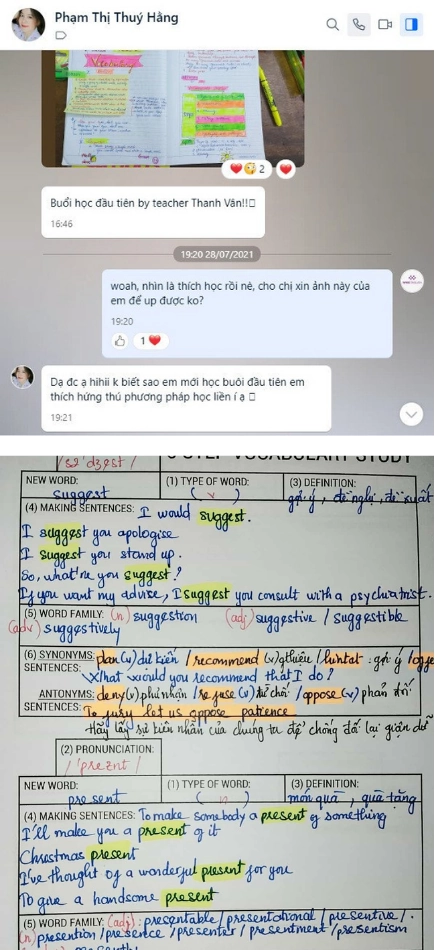 Phạm Thị Thuý Hằng
Vocabulary
2
Buổi học đầu tiên by teacher Thanh Vân!!
16:46
19:20 28/07/2021
woah, nhìn là thích học rồi nè, cho chị xin ảnh này của
em để up được ko?
19:20
1
Dạ đc ạ hihii k biết sao em mới học buổi đầu tiên em
thích hứng thú phương pháp học liền í ạ
19:21
STEP VOCABULARY STUDY
/sə'dʒest/
NEW WORD:
(1) TYPE OF WORD:
(3) DEFINITION:
suggest
( v )
gợi ý, đề nghị, đề xuất
(4) MAKING SENTENCES: I would suggest.
I suggest you apologise
I suggest you stand up.
So, what're you suggest?
If you want my advise, I suggest you consult with a psychiatrist.
(5) WORD FAMILY: (n) suggestion (adj) suggestive / suggestible
(adv) suggestively
(6) SYNONYMS: plan (v) dự kiến / recommend (v) gthiệu / hintat: gợi ý /
SENTENCES: What would you recommend that I do?
ANTONYMS: deny (v) phủ nhận / refuse (v) từ chối / oppose (v) phản đối
SENTENCES: To fury let us oppose patience
Hãy lấy sự kiên nhẫn của chúng ta để chống đỡ lại giận dữ
(2) PRONUNCIATION:
/'preznt/
NEW WORD:
(1) TYPE OF WORD:
(3) DEFINITION:
present
( n )
món quà, quà tặng
(4) MAKING SENTENCES: To make somebody a present of something
I'll make you a present of it
Christmas present
I've thought of a wonderful present for you
To give a handsome present
(5) WORD FAMILY: (adj): presentable / presentational / presentive /.
(n) presention / presence / presenter / presentment / presentism